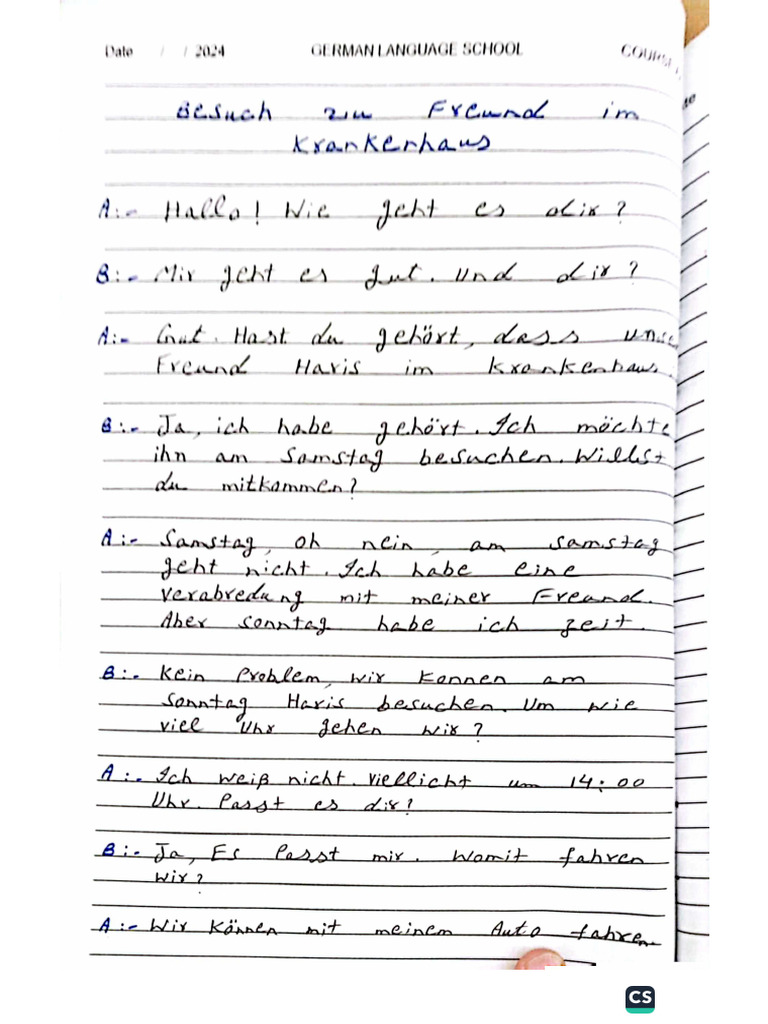 Date / / 2024 GERMAN LANGUAGE SCHOOL COURSE
Besuch zu Freund im
Krankenhaus
A:- Hallo! Wie geht es dir?
B:- Mir geht es gut. Und dir?
A:- Gut. Hast du gehört, dass unse
Freund Haris im Krankenhaus.
B:- Ja, ich habe gehört. Ich möchte
ihn am Samstag besuchen. Willst
du mitkommen?
A:- Samstag, oh nein, am samstag
geht nicht. Ich habe eine
verabredung mit meiner Freund.
Aber sonntag habe ich zeit.
B:- Kein Problem, wir konnen am
Sonntag Haris besuchen. Um wie
viel Uhr gehen wir?
A:- Ich weiß nicht. viellicht um 14:00
Uhr. Passt es dir?
B:- Ja, Es Passt mir. Womit fahren
wir?
A:- Wir können mit meinem Auto fahren
CS